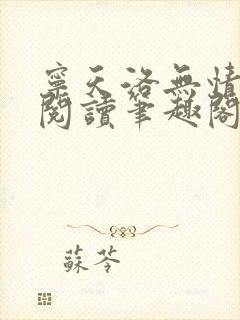 寧天洛無情
閱讀筆趣閣
蘇苓